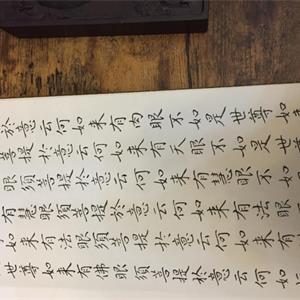 於意云何如来有肉眼不如是世尊如
菩提於意云何如来有天眼不如是世
眼須菩提於意云何如来有慧眼不如
有慧眼須菩提於意云何如来有法眼
如来有法眼須菩提於意云何如来有
世尊如来有佛眼須菩提於意云何如